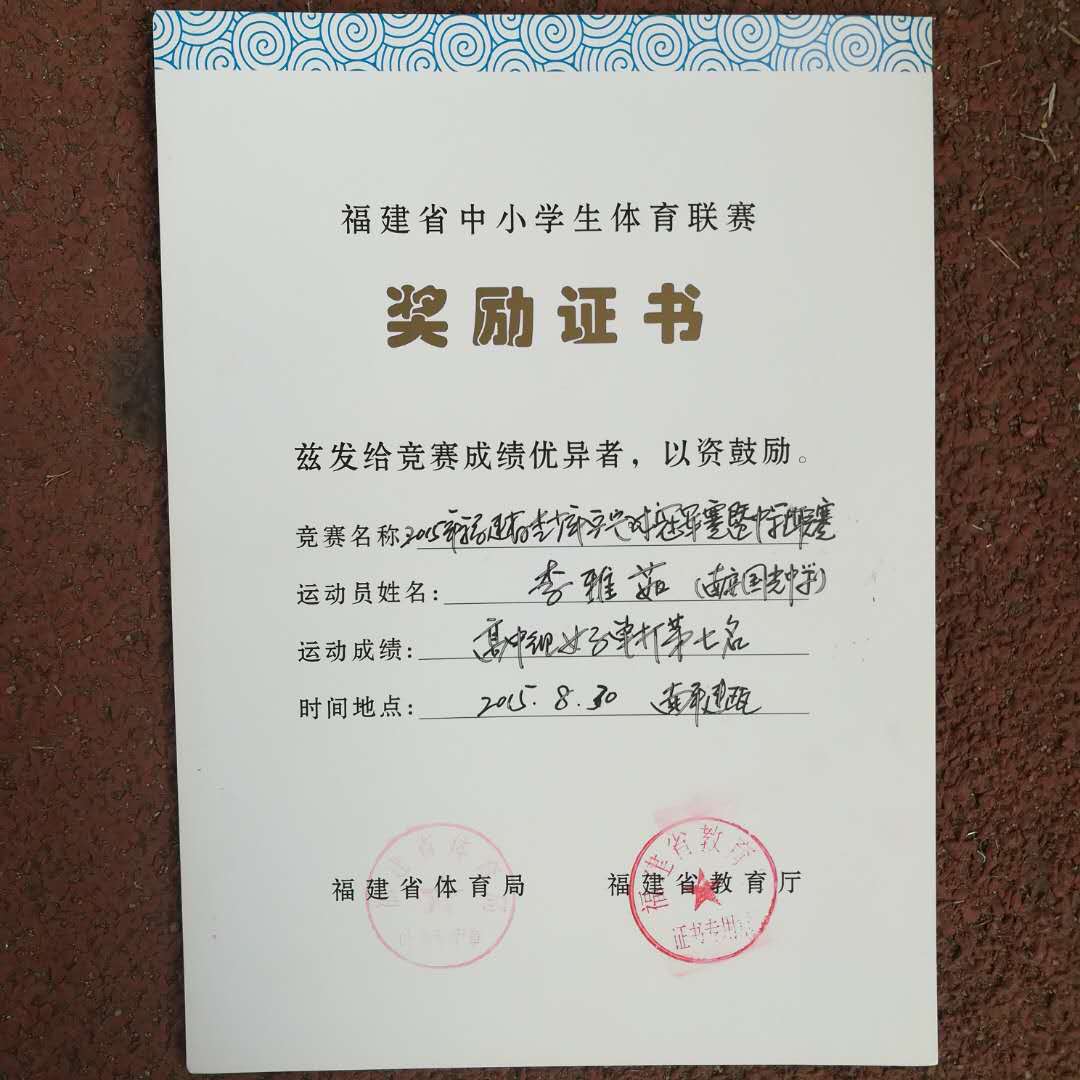 福建省中小学生体育联赛
奖励证书
兹发给竞赛成绩优异者，以资鼓励。
竞赛名称 2015年福建省青少年乒乓球冠军赛暨中学联赛
运动员姓名：李雅茹（南安国光中学）
运动成绩：高中组女子单打第七名
时间地点：2015.8.30 南平建瓯
福建省体育局
福建省教育厅
福建省教育
证书专用